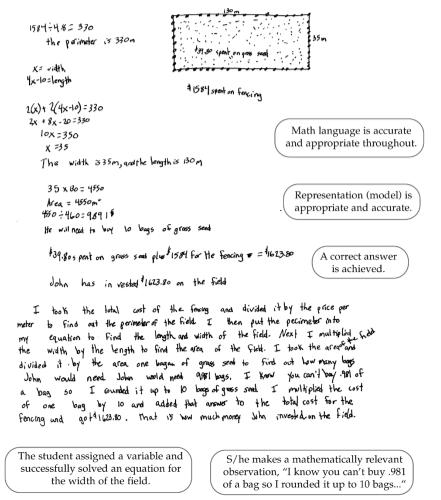 1584÷4.8= 330
the perimeter is 330m
130m
35m
$39.80 spent on grass seed
$1584 spent on fencing
x= width
4x-10=length
2(x)+2(4x-10)=330
2x + 8x-20=330
10x=350
x=35
The width is 35m, and the length is 130m
Math language is accurate
and appropriate throughout.
35 x 130 = 4550
Area = 4550m²
4550÷460=9.891
He will need to buy 10 bags of grass seed
Representation (model) is
appropriate and accurate.
$39.80 spent on grass seed plus $1584 for the fencing = $1623.80
A correct answer
is achieved.
John has invested $1623.80 on the field
I took the total cost of the fencing and divided it by the price per
meter to find out the perimeter of the field. I then put the perimeter into
my equation to find the length and width of the field. Next I multiplied
the width by the length to find the area of the field. I took the area of the field and
divided it by the area one bag of grass seed to find out how many bags
John would need. John would need 9.891 bags. I know you can't buy .981 of
a bag so I rounded it up to 10 bags of grass seed. I multiplied the cost
of one bag by 10 and added that answer to the total cost for the
fencing and got $1623.80. That is how much money John invested on the field.
The student assigned a variable and
successfully solved an equation for
the width of the field.
S/he makes a mathematically relevant
observation, "I know you can't buy .981
of a bag so I rounded it up to 10 bags..."